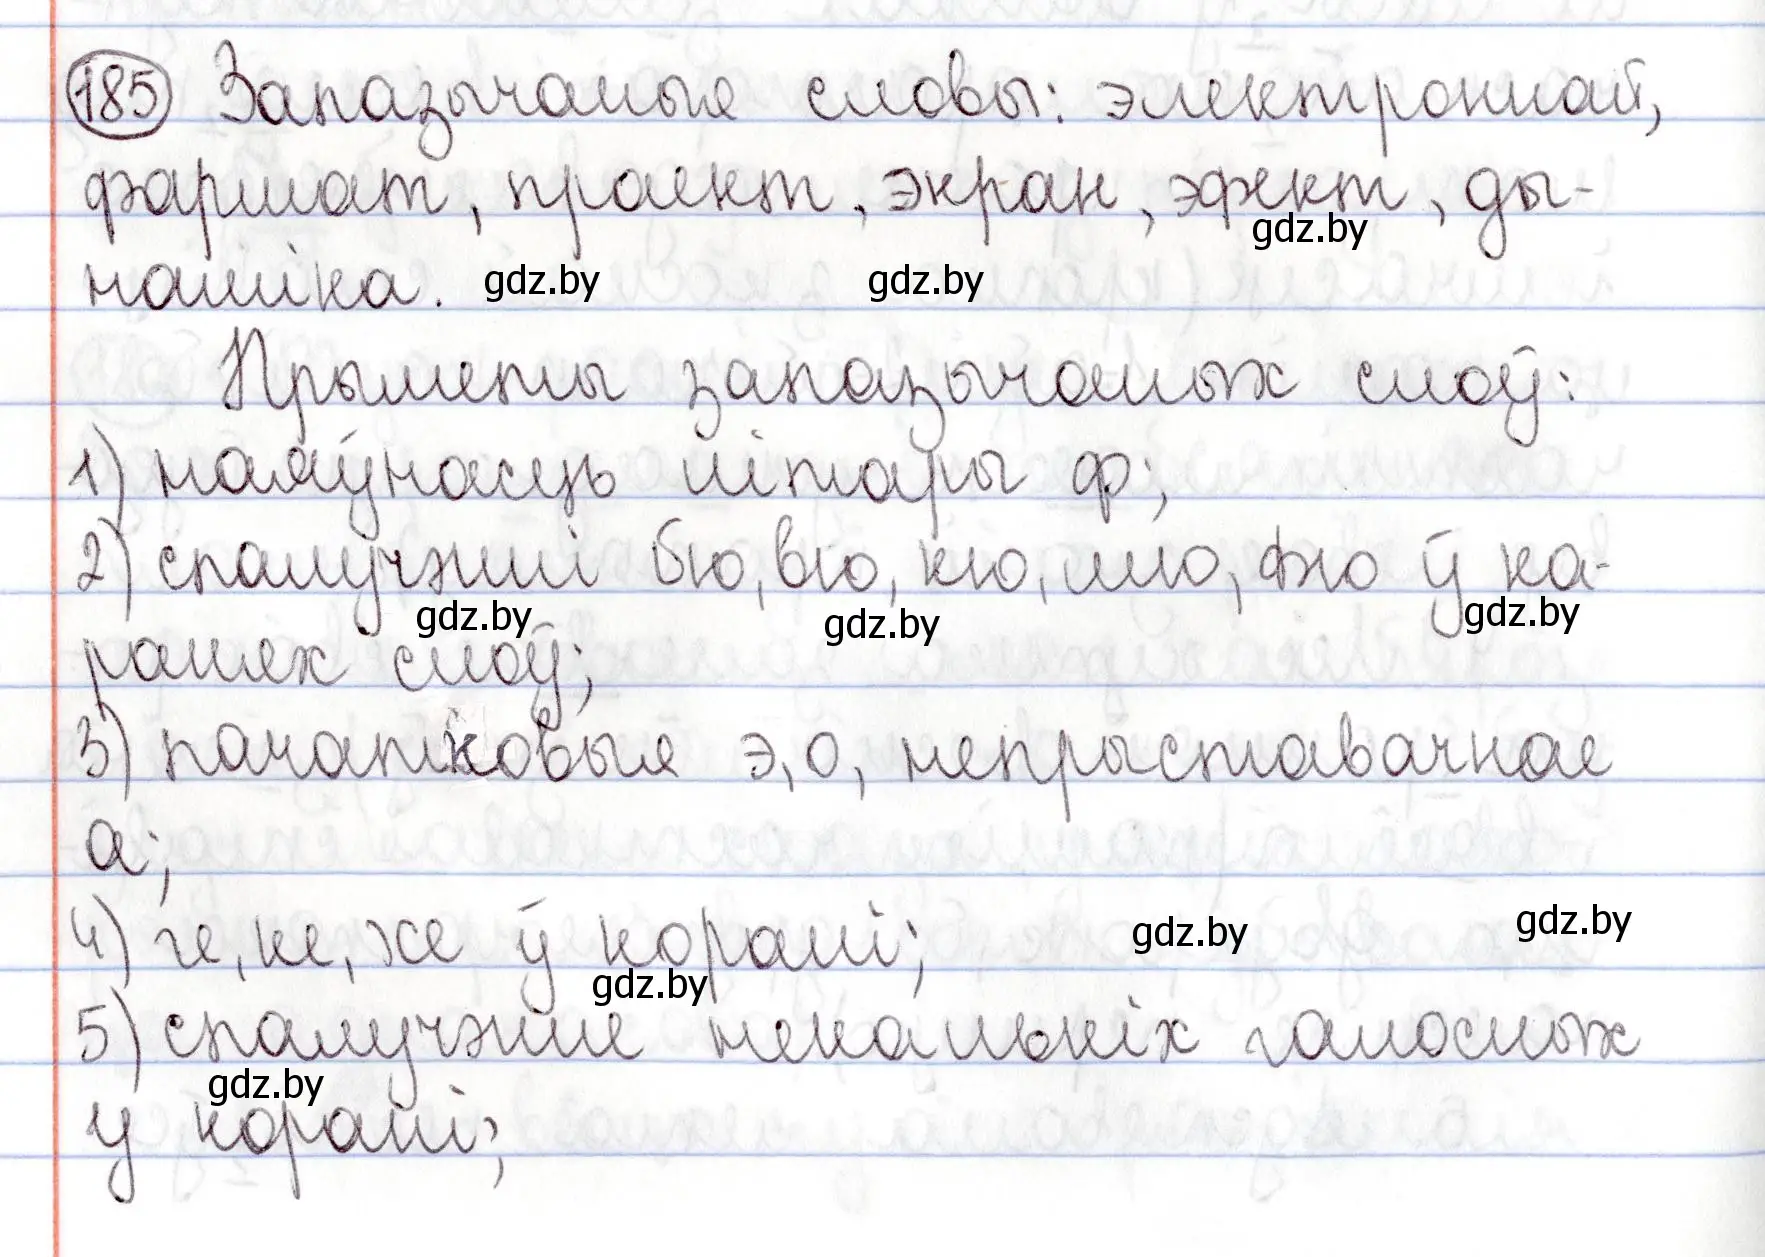 185 Запазычаныя словы: электроннай,
фармат, праект, экран, эфект, ды-
наміка.
Прыметы запазычаных слоў:
1) наяўнасць літары ф;
2) спалучэнні бю, вю, кю, мю, фю ў ка-
ранях слоў;
3) пачатковыя э, о, непрыставачнае
а;
4) ге, ке, хе ў корані;
5) спалучэнне некалькіх галосных
у корані;
gdz.by
gdz.by
gdz.by
gdz.by
gdz.by
gdz.by
gdz.by
gdz.by
gdz.by
gdz.by